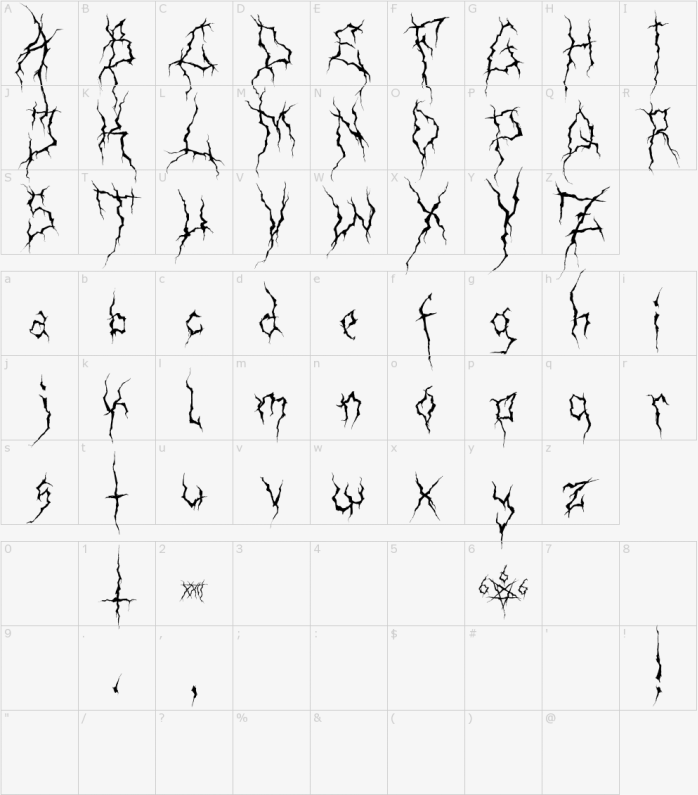 A B C D E F G H I
A B C D E F G H I
J K L M N O P Q R
J K L M N O P Q R
S T U V W X Y Z
S T U V W X Y Z
a b c d e f g h i
a b c d e f g h i
j k l m n o p q r
j k l m n o p q r
s t u v w x y z
s t u v w x y z
0 1 2 3 4 5 6 7 8
6 6 6
9 . , ; : $ # ' !
. , !
" / ? % & ( ) @